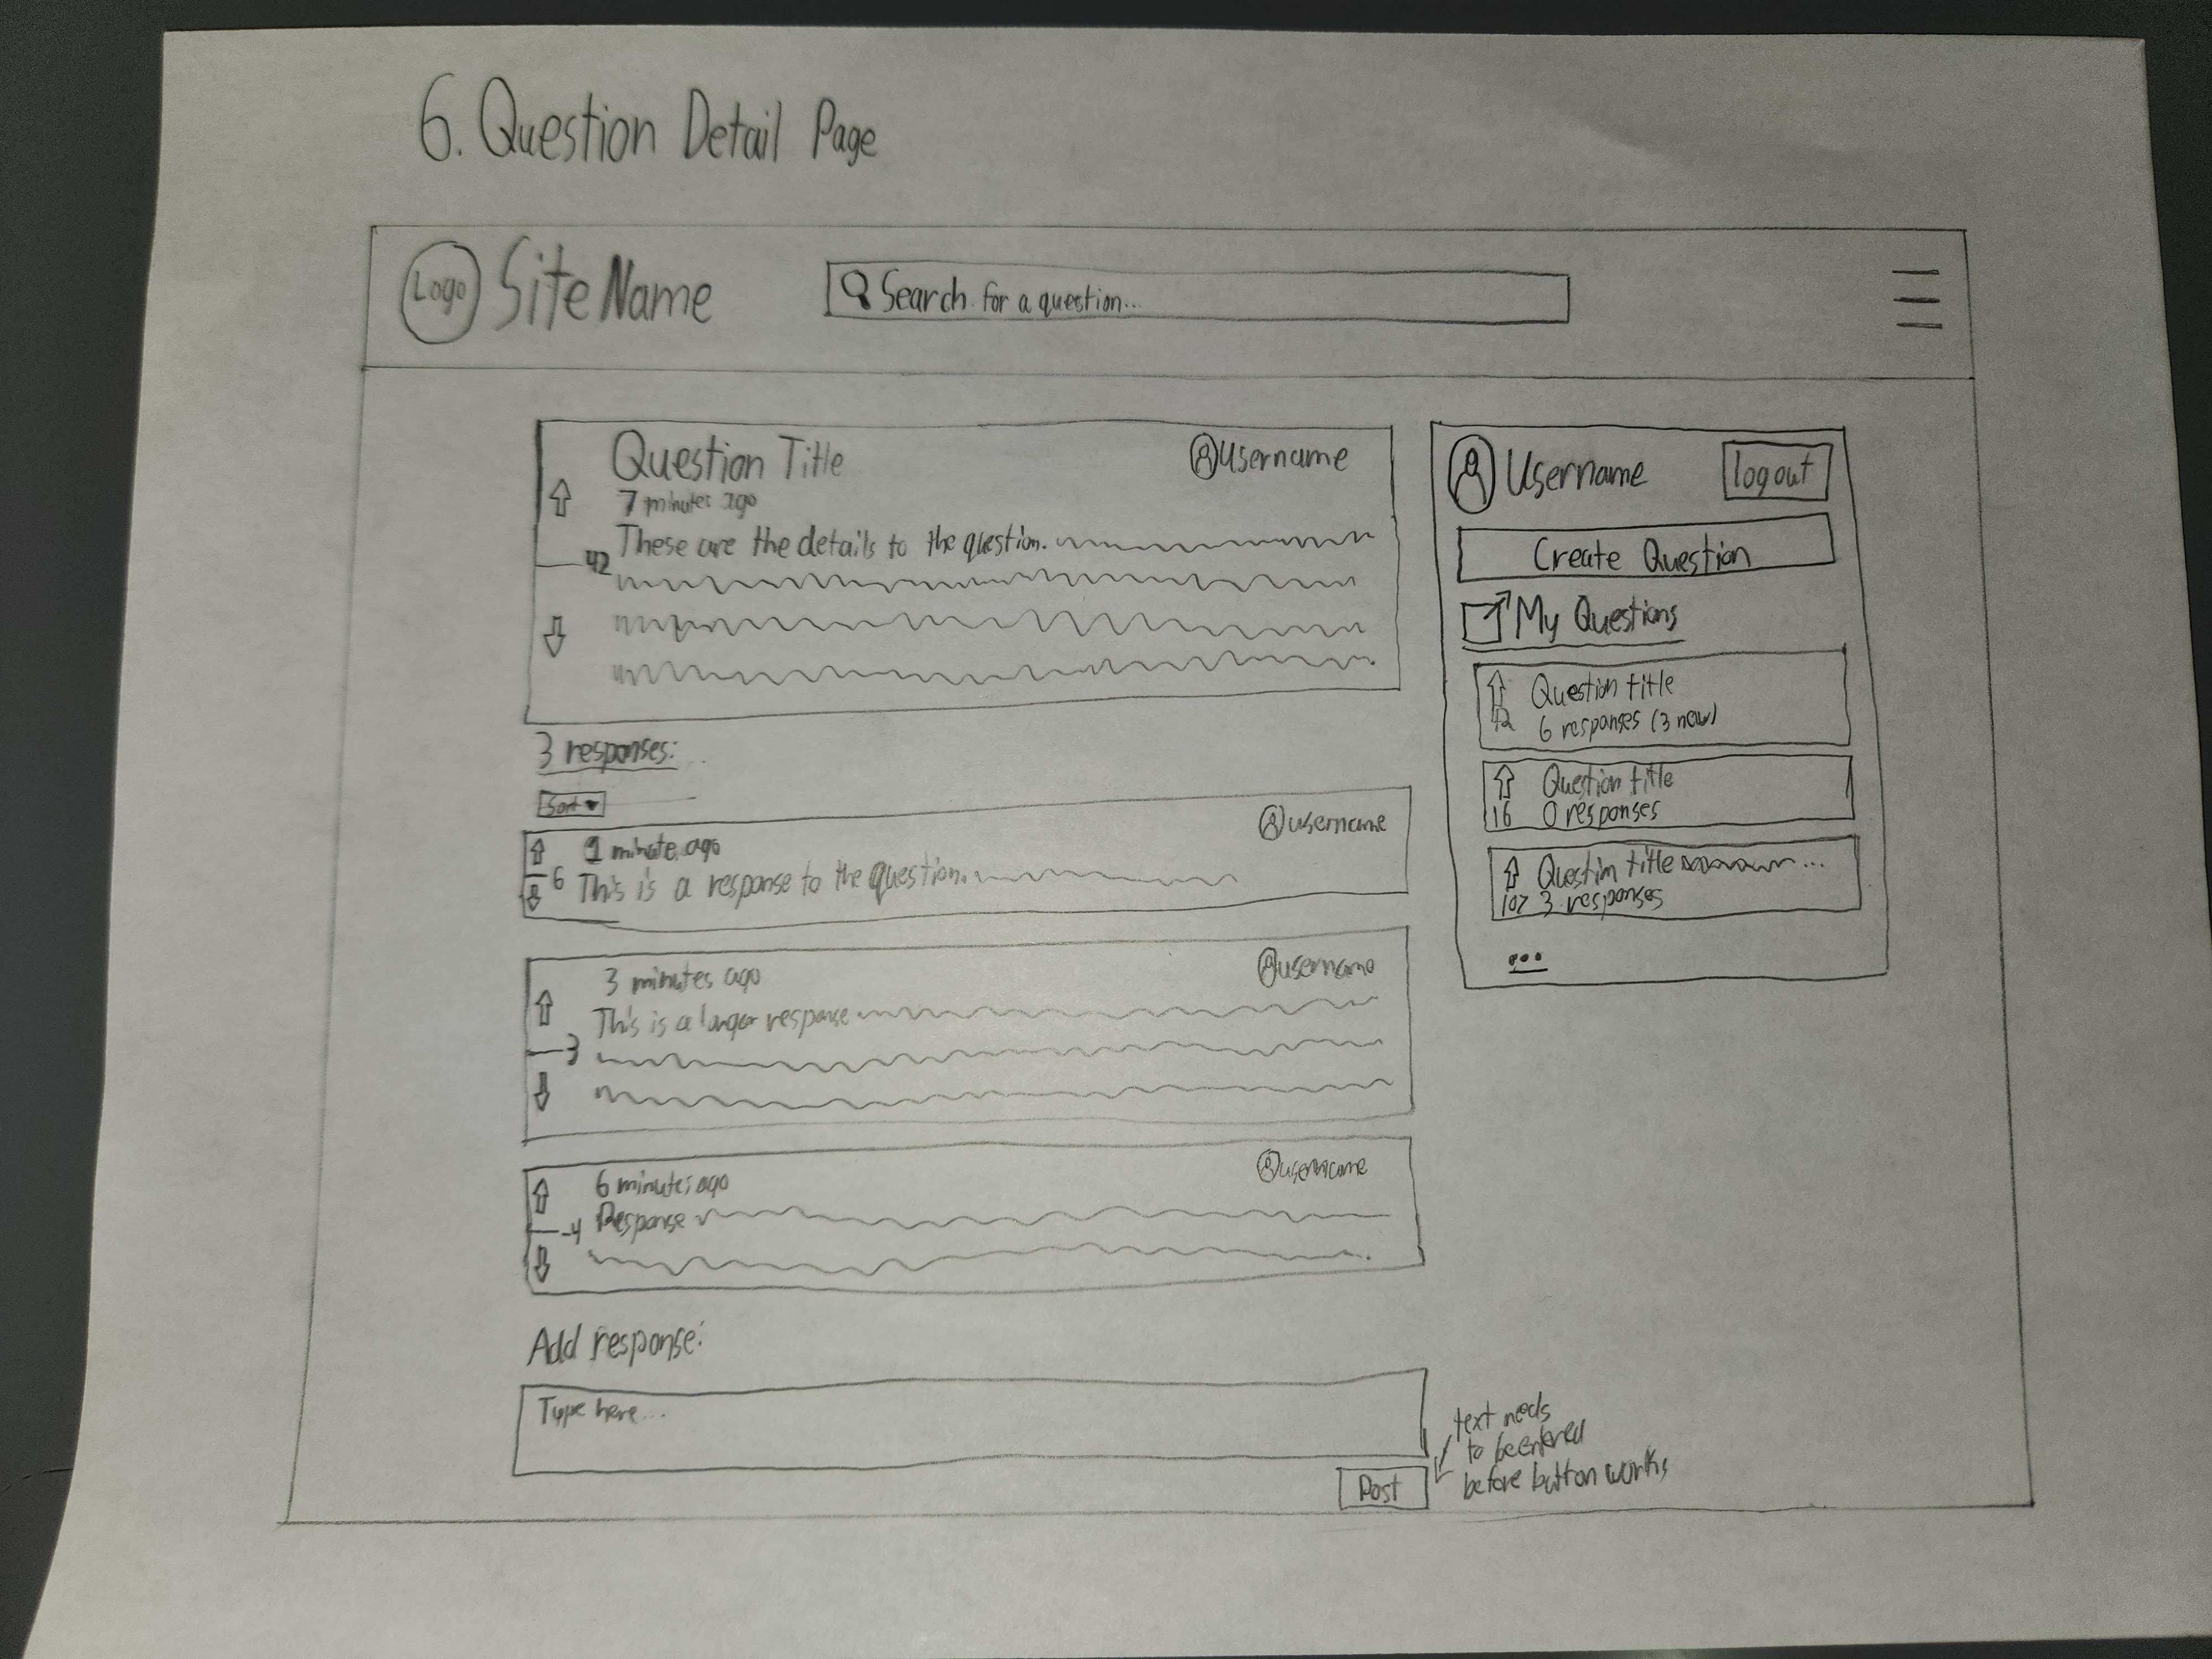 6. Question Detail Page
Logo
Site Name
Search for a question...
Question Title
Username
7 minutes ago
These are the details to the question.
42
3 responses:
Sort
1 minute ago
username
6
This is a response to the question.
3 minutes ago
username
This is a longer response
3
6 minutes ago
username
-4
Response
Add response:
Type here...
Post
text needs
to be entered
before button works
Username
logout
Create Question
My Questions
Question title
42
6 responses (3 new)
Question title
16
0 responses
Question title ...
107
3 responses
...